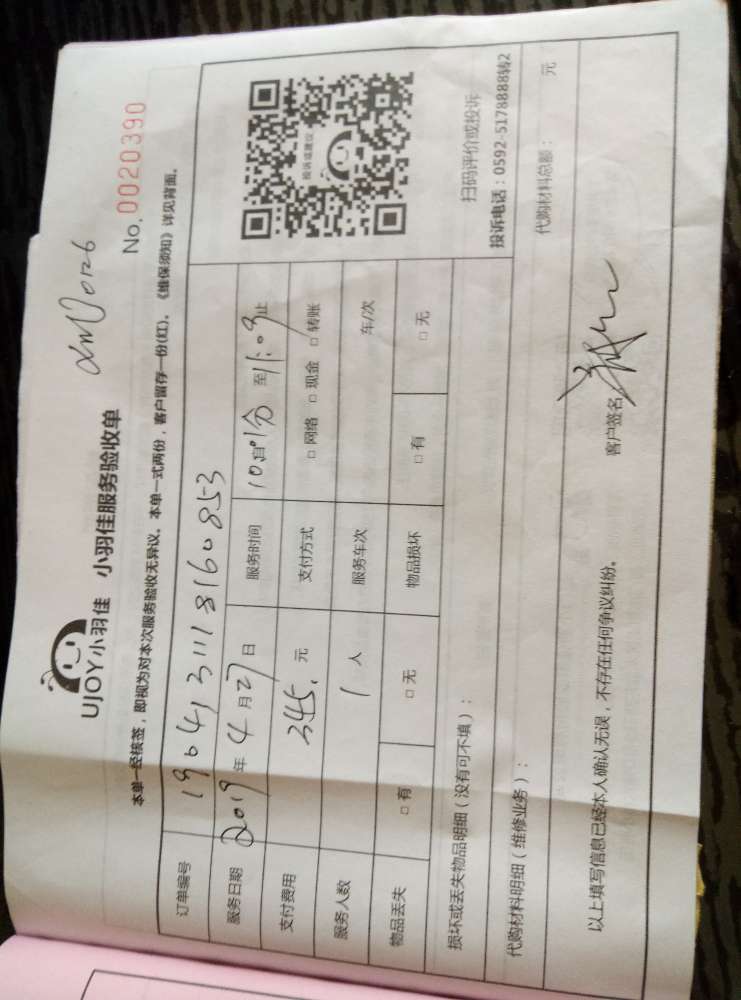 UJOY小羽佳 小羽佳服务验收单
No. 0020390
本单一经核签，即视为对本次服务验收无异议。本单一式两份，客户留存一份(红)。《维保须知》详见背面。
订单编号
服务日期 2019 年 4 月 27 日 服务时间 至 11:09 止
支付费用 345. 元 支付方式 □ 网络 □ 现金 □ 转账
服务人数 1 人 服务车次 车/次
物品丢失 □ 有 □ 无 物品损坏 □ 有 □ 无
投诉或建议
扫码评价或投诉
投诉电话：0592-5178888转2
损坏或丢失物品明细（没有可不填）：
代购材料明细（维修业务）： 代购材料总额： 元
以上填写信息已经本人确认无误，不存在任何争议纠纷。
客户签名